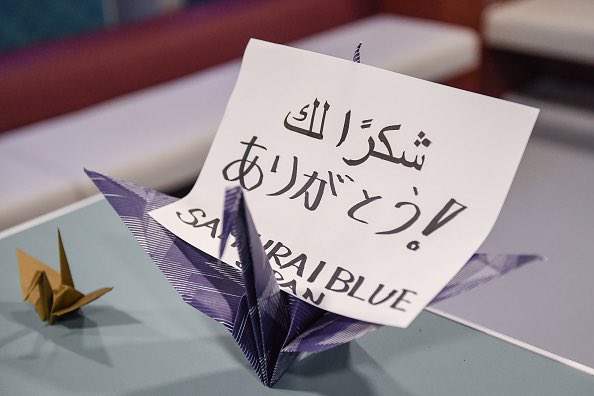 شكرًا لك
ありがとう!
SAMURAI BLUE
JAPAN